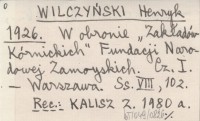 WILCZYŃSKI Henryk
1926. W obronie "Zakładów
Kórnickich" Fundacji Naro-
dowej Zamoyskich. Cz. I.
— Warszawa. Ss. VIII, 102.
Rec.: KALISZ Z. 1980 a.